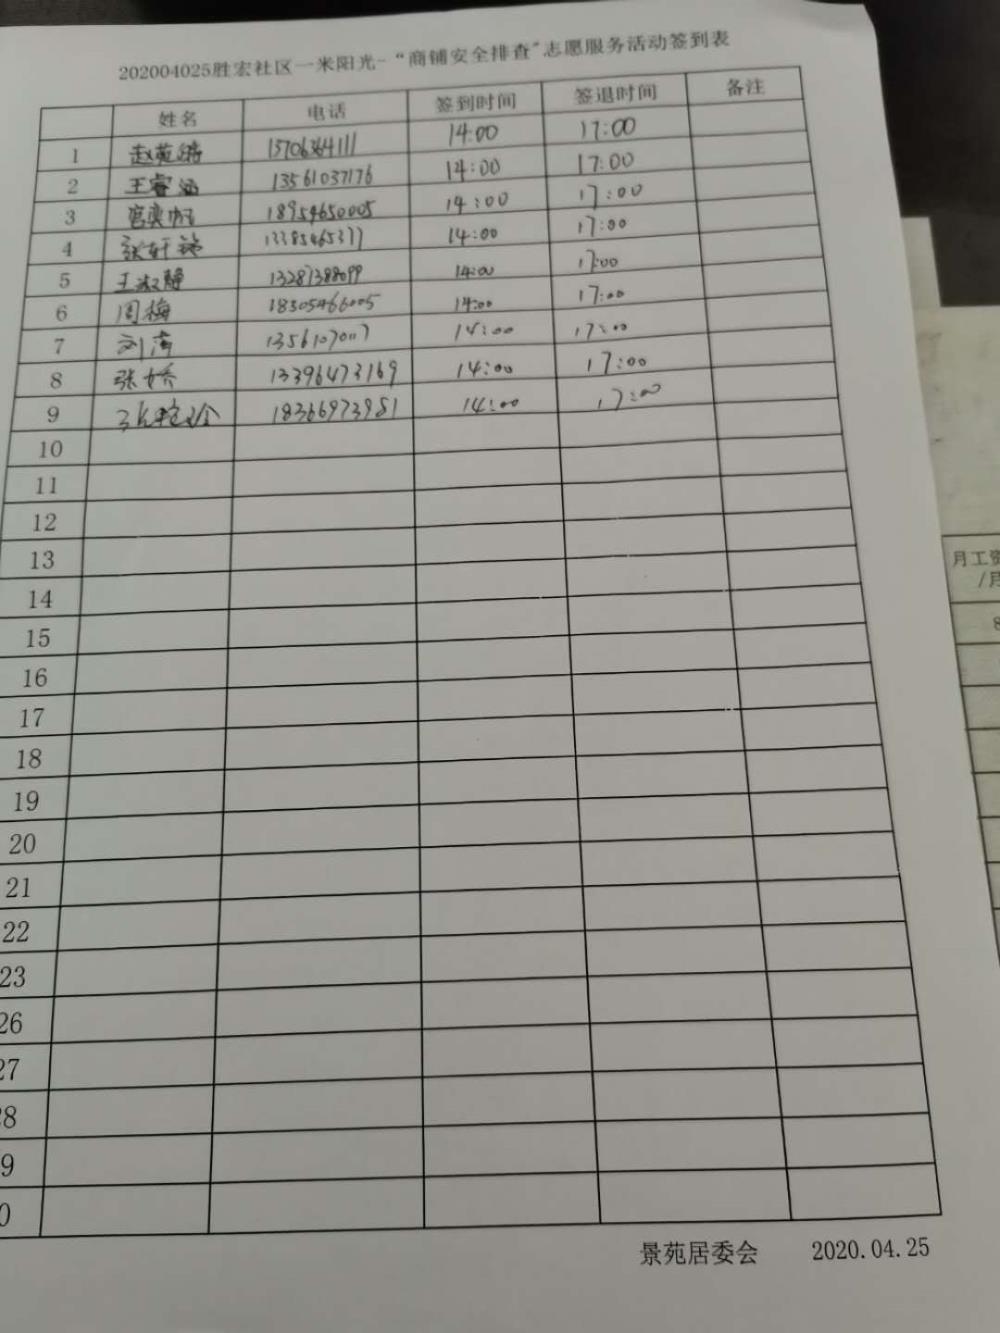 202004025胜宏社区一米阳光-“商铺安全排查”志愿服务活动签到表
姓名 电话 签到时间 签退时间 备注
1 15706364111 14:00 17:00
2 王睿涵 13561037176 14:00 17:00
3 18954650005 14:00 17:00
4 14:00 17:00
5 王淑静 14:00 17:00
6 周梅 18305466005 14:00 17:00
7 14:00 17:00
8 张娇 13396473169 14:00 17:00
9 18366973981 14:00 17:00
10
11
12
13
14
15
16
17
18
19
20
21
22
23
26
27
28
9
0
景苑居委会 2020.04.25
月工资
/月
8